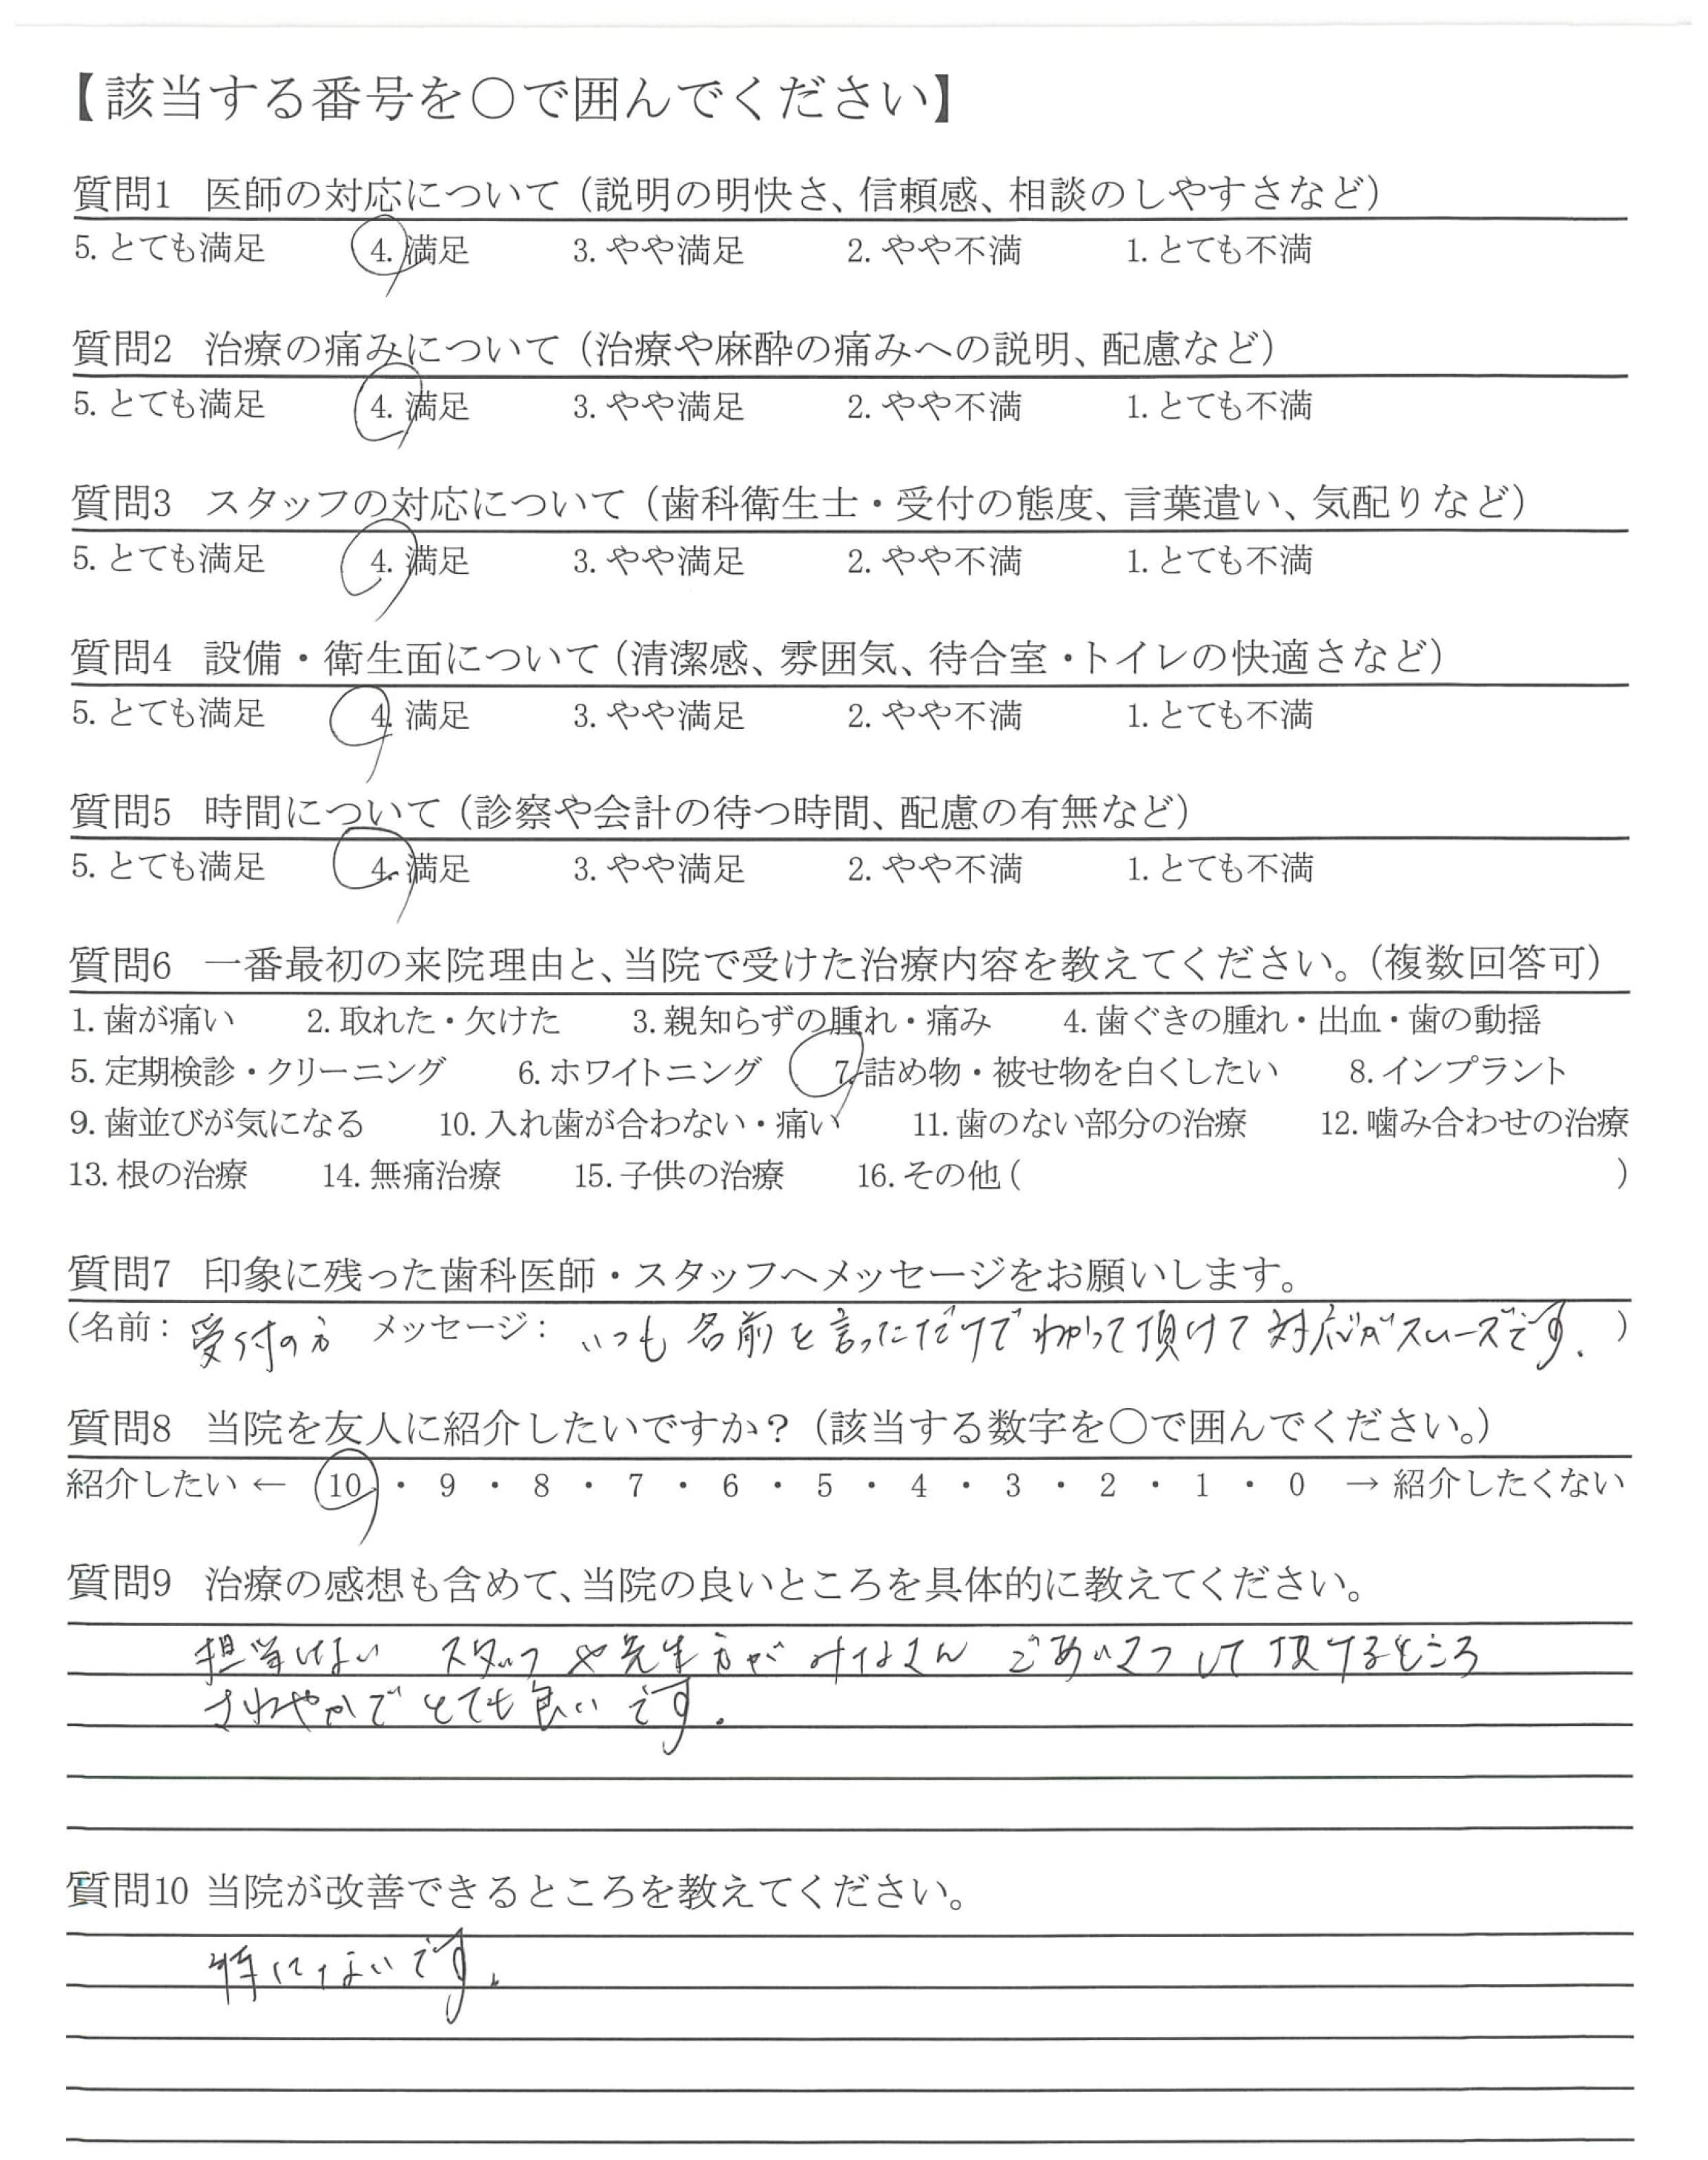 【該当する番号を○で囲んでください】
質問1 医師の対応について（説明の明快さ、信頼感、相談のしやすさなど）
5. とても満足 4. 満足 3. やや満足 2. やや不満 1. とても不満
質問2 治療の痛みについて（治療や麻酔の痛みへの説明、配慮など）
5. とても満足 4. 満足 3. やや満足 2. やや不満 1. とても不満
質問3 スタッフの対応について（歯科衛生士・受付の態度、言葉遣い、気配りなど）
5. とても満足 4. 満足 3. やや満足 2. やや不満 1. とても不満
質問4 設備・衛生面について（清潔感、雰囲気、待合室・トイレの快適さなど）
5. とても満足 4. 満足 3. やや満足 2. やや不満 1. とても不満
質問5 時間について（診察や会計の待つ時間、配慮の有無など）
5. とても満足 4. 満足 3. やや満足 2. やや不満 1. とても不満
質問6 一番最初の来院理由と、当院で受けた治療内容を教えてください。（複数回答可）
1. 歯が痛い 2. 取れた・欠けた 3. 親知らずの腫れ・痛み 4. 歯ぐきの腫れ・出血・歯の動揺
5. 定期検診・クリーニング 6. ホワイトニング 7. 詰め物・被せ物を白くしたい 8. インプラント
9. 歯並びが気になる 10. 入れ歯が合わない・痛い 11. 歯のない部分の治療 12. 噛み合わせの治療
13. 根の治療 14. 無痛治療 15. 子供の治療 16. その他（ ）
質問7 印象に残った歯科医師・スタッフへメッセージをお願いします。
（名前： 受付の方 メッセージ： いつも名前を言っただけでわかって頂けて対応がスムーズです． ）
質問8 当院を友人に紹介したいですか？（該当する数字を○で囲んでください。）
紹介したい ← 10 ・ 9 ・ 8 ・ 7 ・ 6 ・ 5 ・ 4 ・ 3 ・ 2 ・ 1 ・ 0 → 紹介したくない
質問9 治療の感想も含めて、当院の良いところを具体的に教えてください。
担当けない スタッフや先生方が みなさん ごあいさつして頂けるところ
さわやかで とても良いです．
質問10 当院が改善できるところを教えてください。
特にないです．